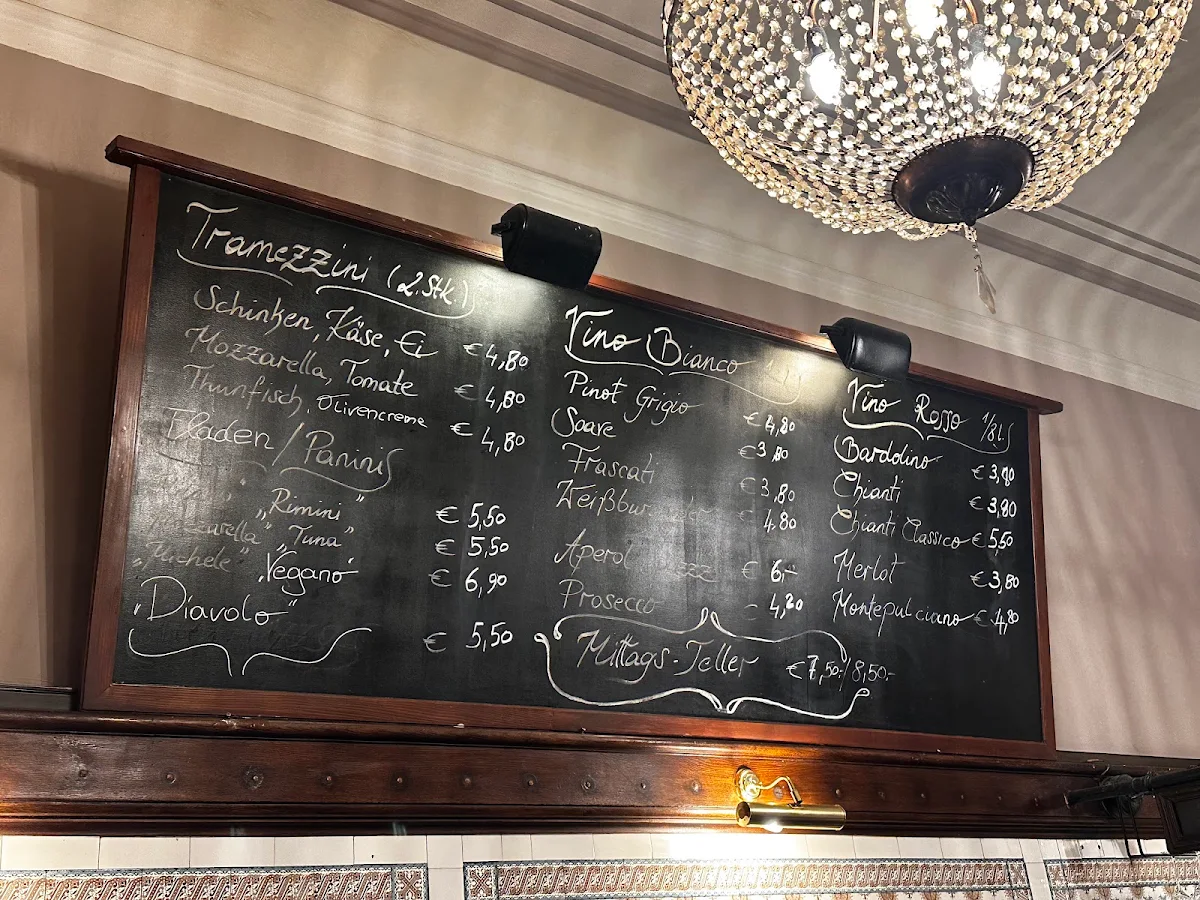 Tramezzini (2 Stk)
Schinken, Käse, Ei € 4,80
Mozzarella, Tomate € 4,80
Thunfisch, Olivencreme € 4,80
Fladen / Paninis
"Rimini" € 5,50
"Tuna" € 5,50
"Michele" "Vegano" € 6,90
"Diavolo" € 5,50
Vino Bianco
Pinot Grigio € 4,80
Soave € 3,80
Frascati € 3,80
4,80
Aperol € 6,-
Prosecco 4,20
Mittags-Teller € 7,50,-/8,50,-
Vino Rosso 1/8 l.
Bardolino € 3,90
Chianti € 3,80
Chianti Classico € 5,50
Merlot € 3,80
Montepulciano € 4,80